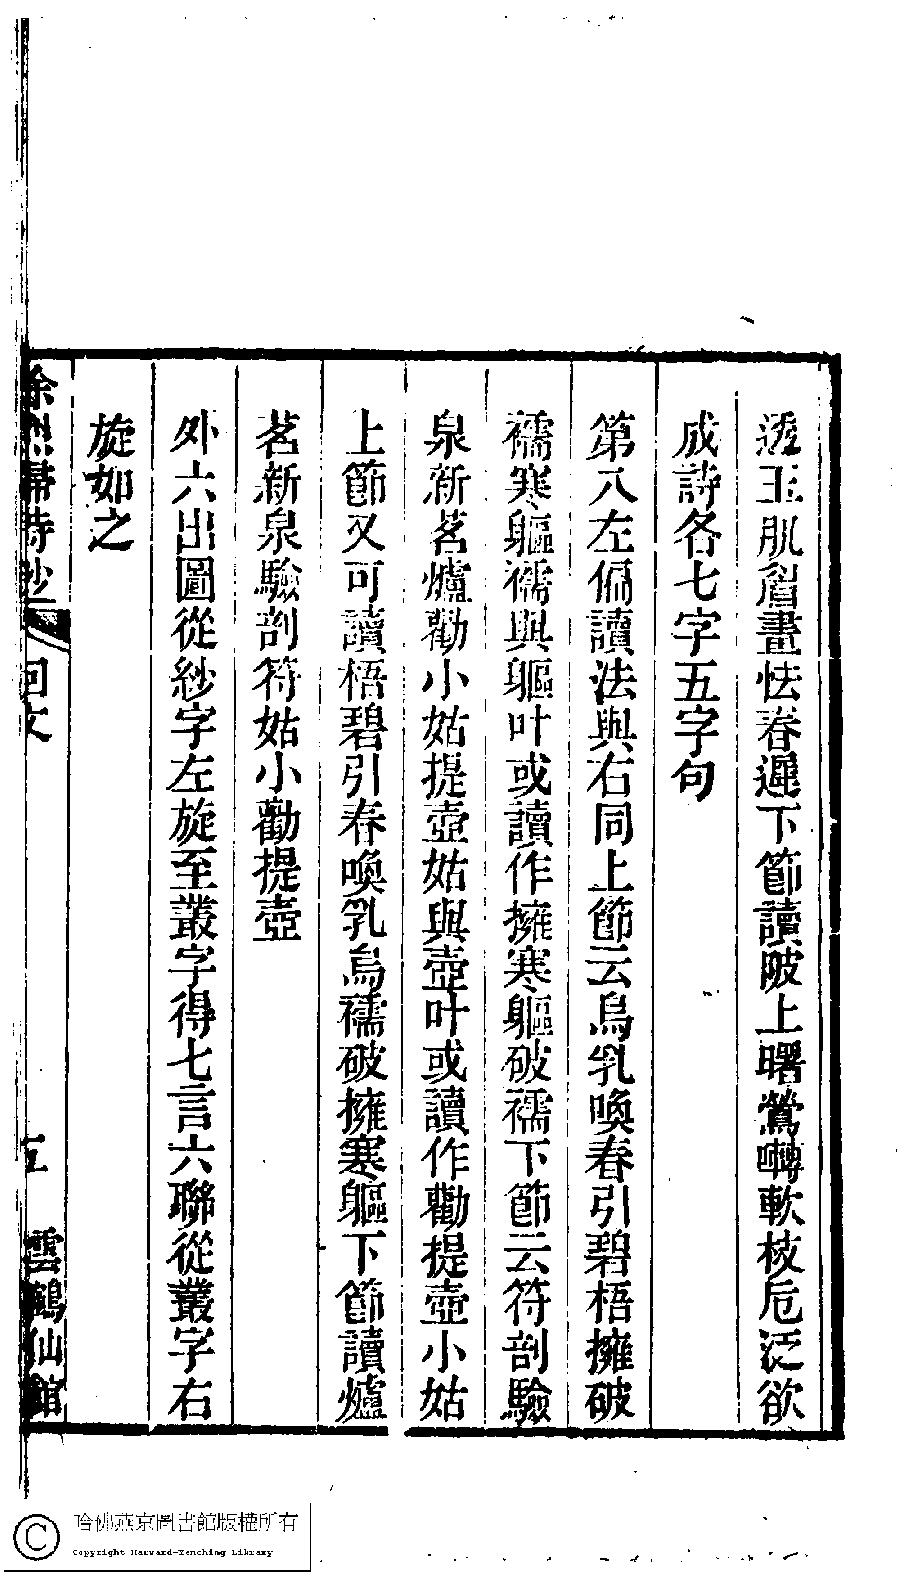 透玉肌眉畫怯春遲下節讀陂上曙鶯囀軟枝卮泛欲
成詩各七字五字句
第八左偏讀法與右同上節云烏乳喚春引碧梧擁破
襦寒軀襦與軀叶或讀作擁寒軀破襦下節云符剖驗
泉新茗爐勸小姑提壺姑與壺叶或讀作勸提壺小姑
上節又可讀梧碧引春喚乳烏襦破擁寒軀下節讀爐
茗新泉驗剖符姑小勸提壺
外六出圖從紗字左旋至叢字得七言六聯從叢字右
旋如之
回文
五
雲鶴仙館
哈佛燕京圖書館版權所有
Copyright Harvard-Yenching Library